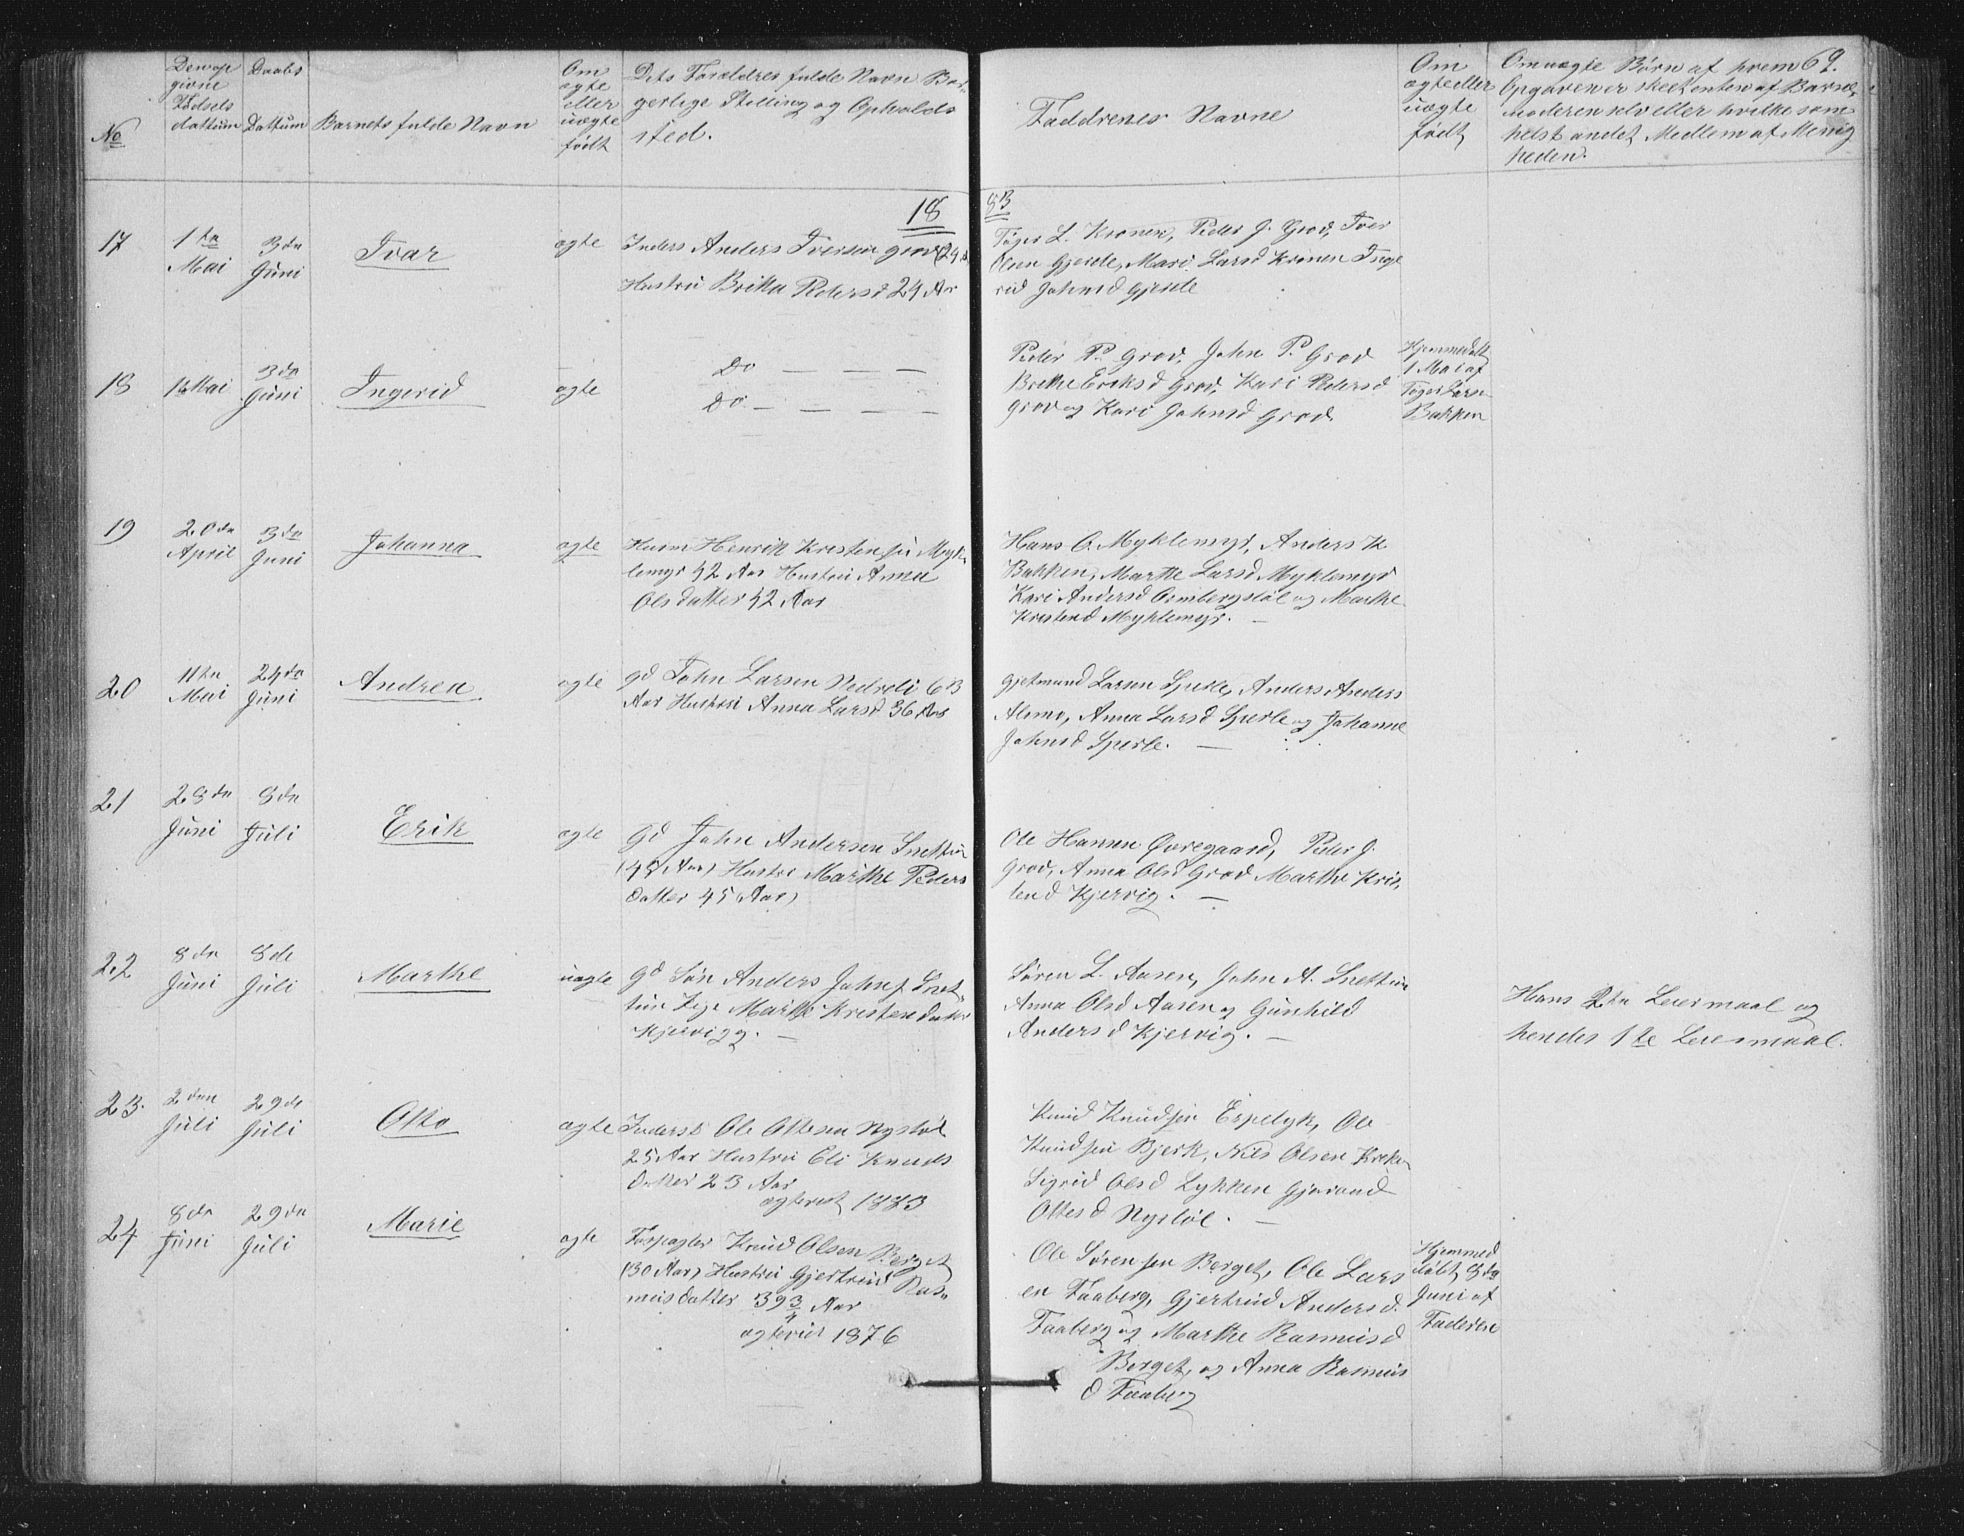 No
Den op
givne
Fødsels
dattum
Daabs
Dattum
Barnets fulde Navn
Om
ægte
eller
uægte
født
Dets Forældres fulde Navn Bor
gerlige Stilling og Opholds
sted.
Faddrenes Navne
Om
ægte eller
uægte
født
Om uægte Børn af hvem 69.
Opgaven er skeet enten af Barne
moderen selv eller hvilke som
helst andet Medlem af Menig
heden.
18 83
17
1ste
Mai
3die
Juni
Ivar
ægte
Inders Anders Iversen Grov (24
Hustru Britta Pedersd 24 Aar
Tøger L. Kronen, Peder J. Grov, Iver
Olsen Gjerde, Mari Larsd Kronen Inge
rid Johnsd Gjerde
18
1ste Mai
3die
Juni
Ingerid
ægte
Do — — —
Do — — — —
Peder P. Grov, John P. Grov
Brithe Eriksd Grov, Kari Pedersd
Grov og Kari Johnsd Grov
Hjemmedøbt
1 Mai af
Tøger Larsen
Bakken
19
20de
April
3die
Juni
Johanna
ægte
Husm Henrik Kristensen Myk
lemyr 42 Aar Hustru Anna
Olsdatter 42 Aar
Hans O. Myklemyr, Anders K
Bakken, Marthe Larsd Myklemyr
Kari Andersd Ormbergstøl og Marthe
Kristend Myklemyr. —
20
11te
Mai
24de
Juni
Andrea
ægte
gd John Larsen Nedreli 63
Aar Hustru Anna Larsd 36 Aar
Gjetmund Larsen Sperle, Anders Anders
Alsmo, Anna Larsd Sperle og Johanne
Johnsd Sperle. —
21
28de
Juni
8de
Juli
Erik
ægte
Gd John Andersen Snettun
(48 Aar) Hustru Marthe Peders
datter 45 Aar)
Ole Hansen Øvregaard, Peder J.
Grov, Anna Olsd Grov Marthe Kris
tend Kjervig. —
22
8de
Juni
8de
Juli
Marthe
uægte
Gd Søn Anders Johns. Snet
tun Pige Marthe Kristendatter
Kjervig. —
Søren L. Aasen, John A. Snettun
Anna Olsd Aasen og Gunhild
Andersd Kjervig. —
Hans 2den Leiermaal og
hendes 1ste Leiermaal.
23.
2den
Juli
29de
Juli
Otto
ægte
Inderst Ole Ottesen Nystøl
25 Aar Hustru Eli Knuds
datter 23 Aar
ægteviet 1883
Knud Knudsen Espelyk, Ole
Knudsen Bjerk, Nils Olsen Kreken
Sigrid Olsd Lykken Gjørond
Ottesd Nystøl. —
24
8de
Juni
29de
Juli
Marie
ægte
Forpagter Knud Olsen Berget
(30 Aar) Hustru Gjertrud Ras
musdatter 39 3/4 Aar
ægteviet 1876
Ole Sørensen Berget, Ole Lars
en Faaberg, Gjertrud Andersd
Faaberg og Marthe Rasmusd
Berget, og Anna Rasmus
d Faaberg
Hjemmed
døbt 8de
Juni af
Faderen